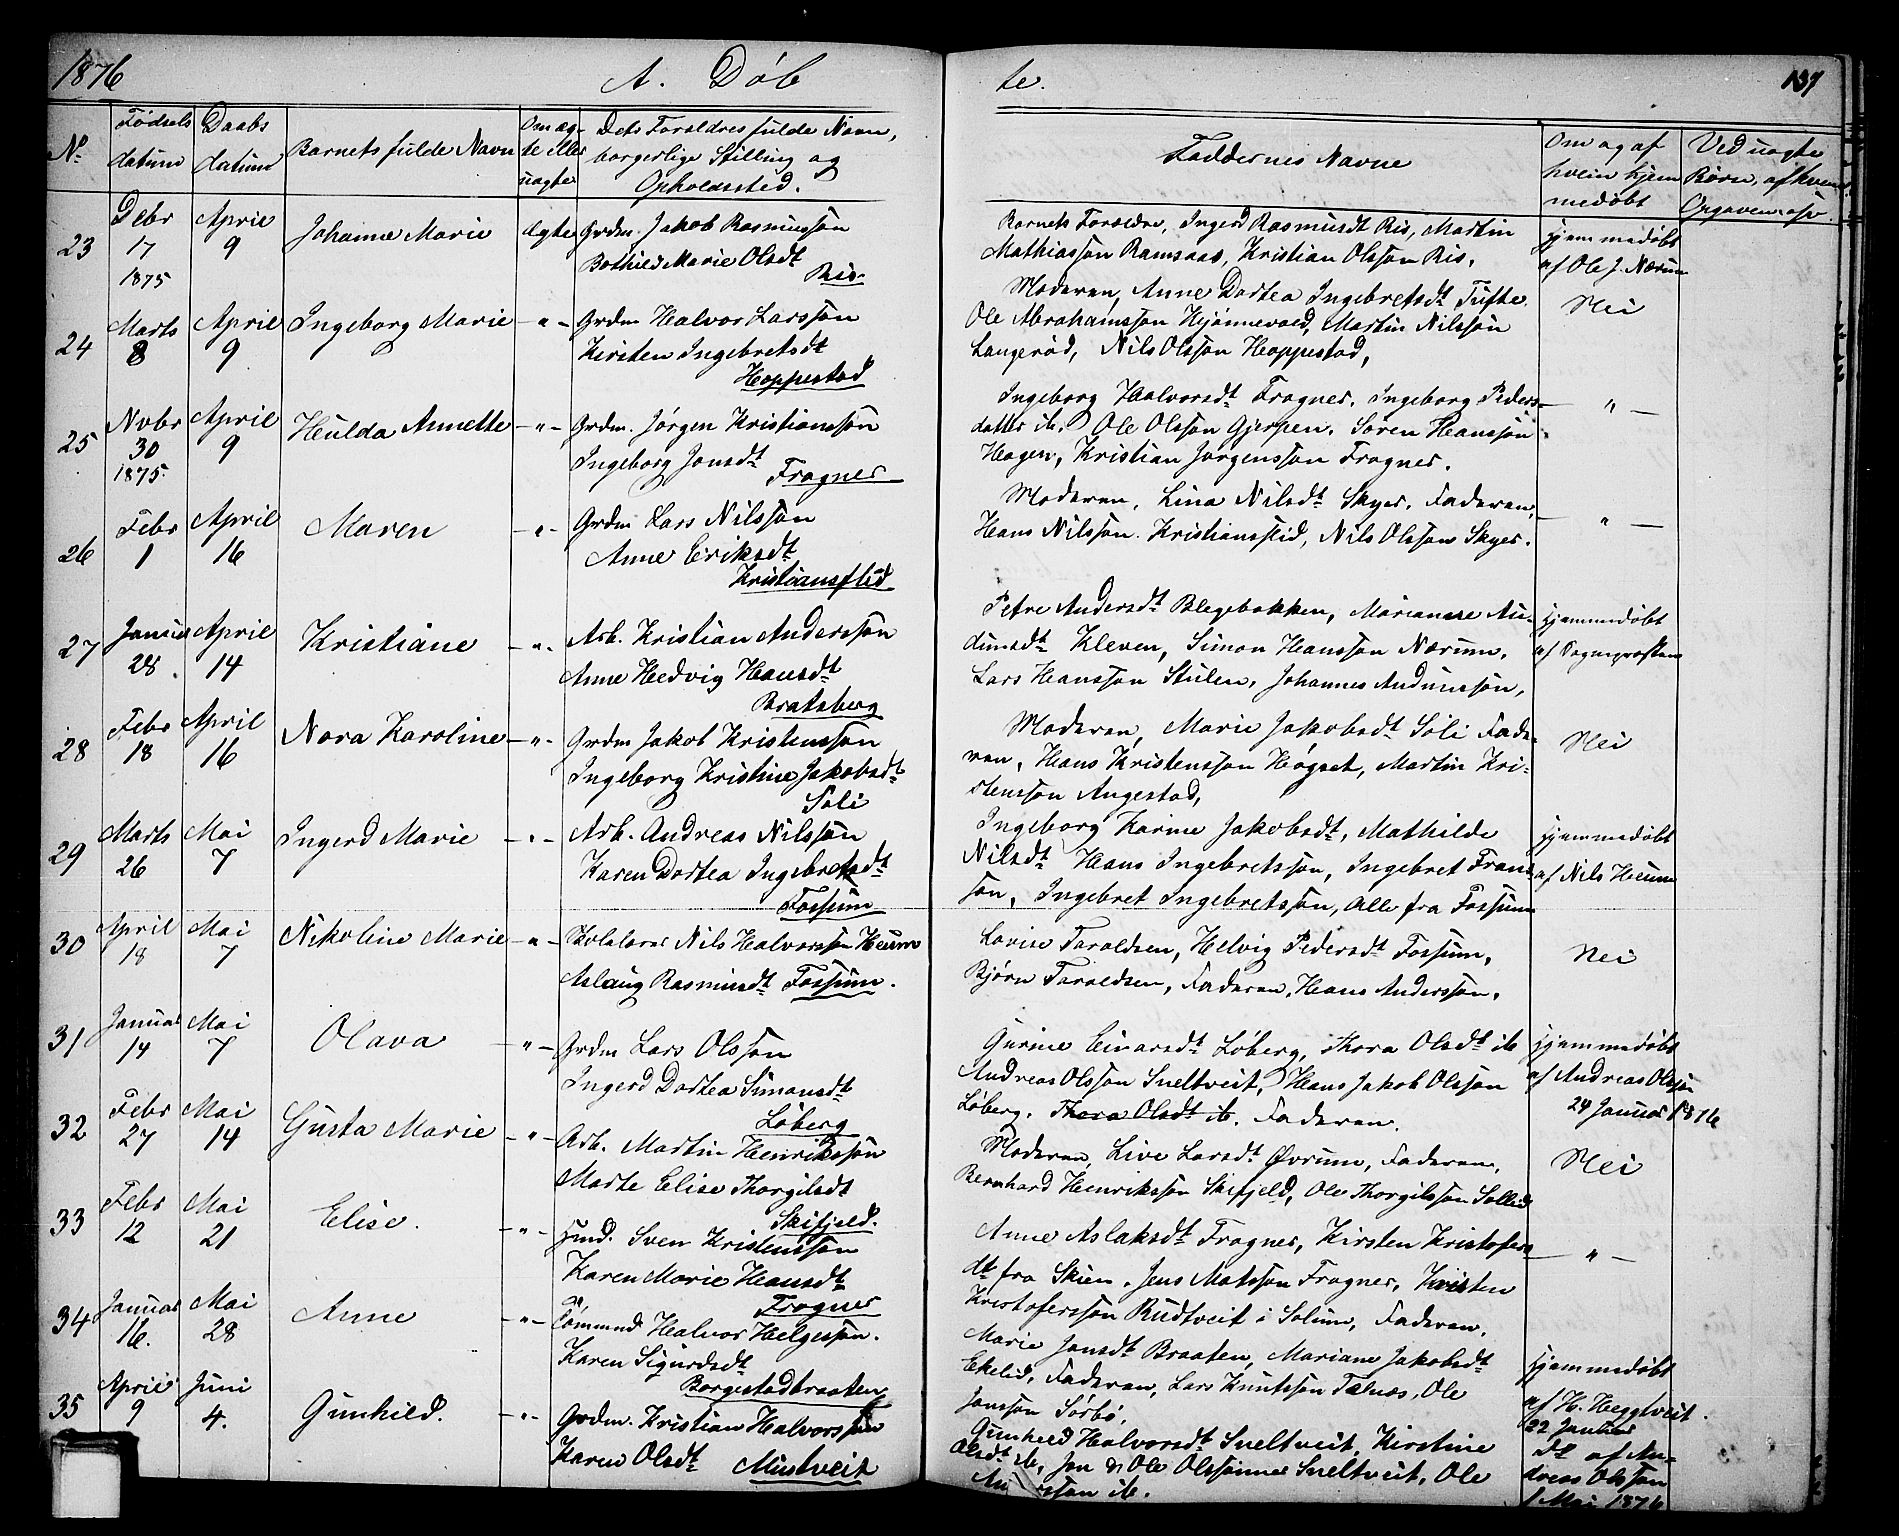 1876 A. Døb
te. 137
No.
Fødsels datum
Daabs datum
Barnets fulde Navn
Om æg-
te eller
uægte
Dets Forældres fulde Navn,
borgerlige Stilling og
Opholdssted.
Faddernes Navne
Om og af
hvem hjem
medøbt
Ved uægte
Børn, af hvem
Opgaven
23 Debr 17 1875 April 9 Johanne Marie ægte Grdm. Jakob Rasmussøn
Bothild Marie Olsdt
Ris
Barnets Forældre, Ingerd Rasmusdt Ris, Martin
Mathiassøn Ramsaas, Kristian Olssøn Ris,
Hjemmedøbt
af Ole J. Nærum
24 Marts 8 April 9 Ingeborg Marie - " - Grdm Halvor Larssøn
Kirsten Ingebretsdt
Hoppestad
Moderen, Anne Dortea Ingebretsdt Tufte
Ole Abrahamssøn Hjønnevald, Martin Nilssøn
Langerød, Nils Olssøn Hoppestad,
Nei
25 Novbr 30 1875. April 9 Hulda Annette - " - Grdm. Jørgen Kristianssøn
Ingeborg Jonsdt
Frogner
Ingeborg Halvorsdt Frogner, Ingeborg Peders-
datter ib. Ole Olssøn Gjerpen. Søren Hanssøn
Hagen, Kristian Jørgenssøn Frogner.
- " -
26 Febr 1 April 16 Maren - " - Grdm Lars Nilssøn
Anne Eriksdt
Kristianslid
Moderen, Lina Nilsdt Skyer, Faderen,
Hans Nilssøn Kristianslid, Nils Olssøn Skyer.
- " -
27 Januar 28. April 14 Kristiane - " - Arb. Kristian Anderssøn
Anne Hedvig Hansdt
Bratsberg
Petre Andersdt Blegebakken, Marianne Au-
dunsdt Kleven, Simon Hanssøn Nærum,
Lars Hanssøn Stulen, Johannes Audunssøn,
Hjemmedøbt
af Sognepræsten
28 Febr 18 April 16 Nora Karoline - " - Grdm Jakob Kristenssøn
Ingeborg Kristine Jakobsdt
Soli
Moderen, Marie Jakobsdt Soli Fade-
ren, Hans Kristenssøn Høgset, Martin Kri-
stenssøn Augestad,
Nei
29 Marts 26 Mai 7 Ingerd Marie - " - Arb. Andreas Nilssøn
Karen Dortea Ingebretsdt
Fossum
Ingeborg Karine Jakobsdt, Mathilde
Nilsdt Hans Ingebretssøn, Ingebret Frans-
søn, Ingebret Ingebretssøn, Alle fra Fossum
Hjemmedøbt
af Nils Heum
30 April 18 Mai 7 Nikoline Marie - " - Skolelærer Nils Halvorssøn Heum
Aslaug Rasmusdt Fossum.
Lovise Taraldsen, Helvig Pedersdt Fossum,
Bjørn Taraldsen, Faderen, Hans Anderssøn,
Nei
31 Januar 14 Mai 7 Olava - " - Grdm Lars Olssøn
Ingerd Dortea Simonsdt
Løberg
Gurine Einarsdt Løberg, Thora Olsdt ib
Andreas Olssøn Sneltveit, Hans Jakob Olssøn
Løberg. Thora Olsdt ib. Faderen.
Hjemmedøbt
af Andreas Olssøn
24 Januar 1876
32 Febr 27 Mai 14 Gusta Marie - " - Arb. Martin Henrikssøn
Marte Elise Thorgilsdt
Skifjeld.
Moderen, Live Larsdt Øvrum, Faderen,
Bernhard Henrikssøn Skifjeld, Ole Thorgilssøn Sollid
Nei
33 Febr 12 Mai 21 Elise. - " - Hmd. Sven Kristenssøn
Karen Marie Hansdt
Frogner
Anne Aslaksdt Frogner, Kirsten Kristofers-
dt fra Skien, Jens Matssøn Frogner, Kristen
Kristoferssøn Rudtveit i Solum, Faderen.
- " -
34 Januar 16. Mai 28 Anne - " - Tømmmd Halvor Helgessøn.
Karen Sigurdsdt
Borgestadbraaten
Marie Jonsdt Braaten, Mariane Jakobsdt
Ekelid, Faderen, Lars Knutssøn Falnæs, Ole
Jonssøn Sørbø,
Hjemmedøbt
af H. Heggtveit.
22 Januar
35 April 9 Juni 4. Gunhild. - " - Grdm. Kristian Halvorssøn
Karen Olsdt Mustveit
Gunhild Halvorsdt Sneltveit, Kirstine
Olsdt ib, Jon & Ole Olssønner Sneltveit, Ole
ssøn ib.
Do af An-
dreas Olssøn
1 Mai 1876